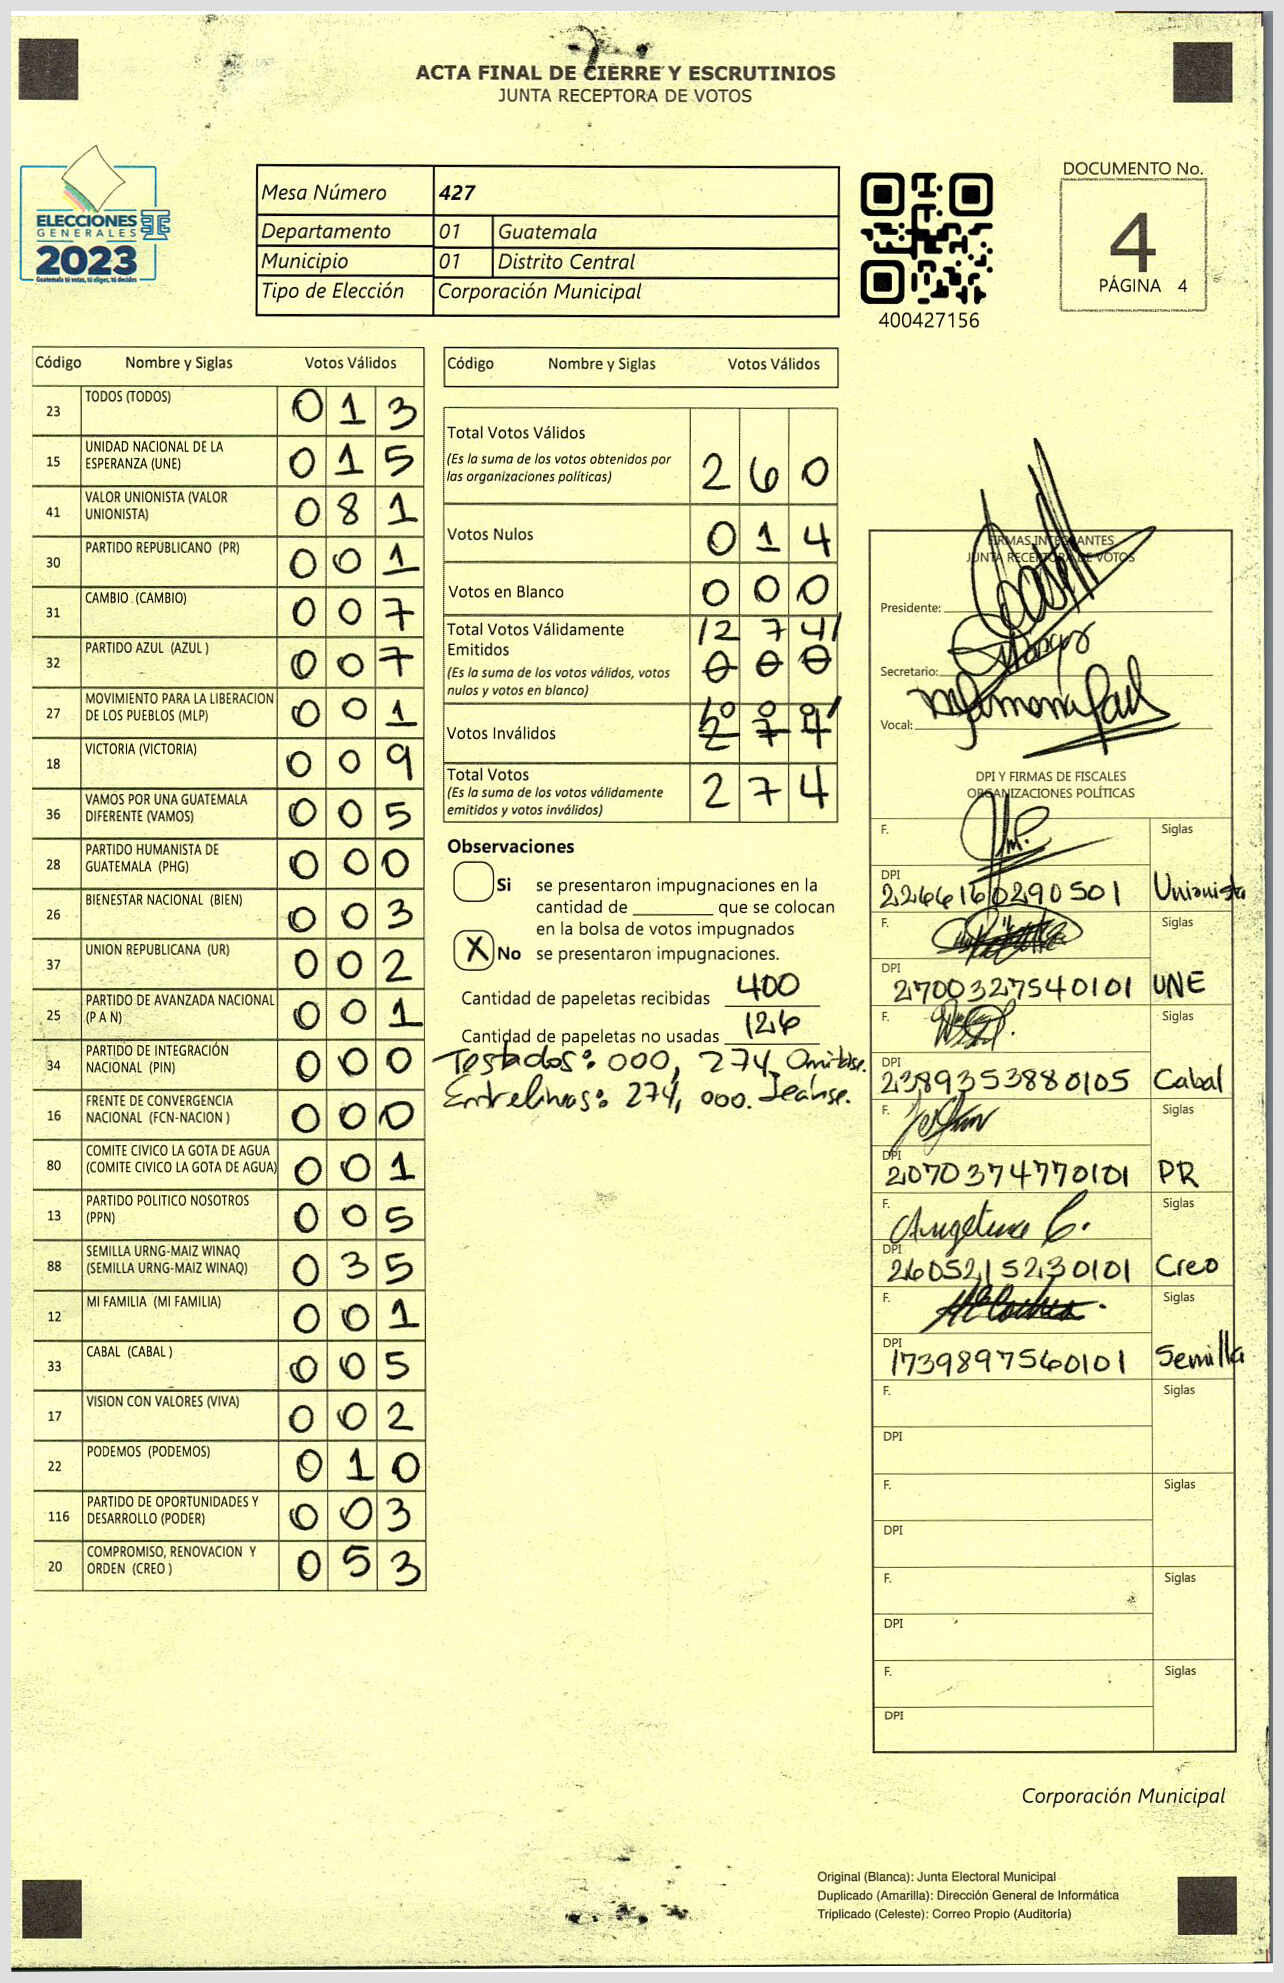 ACTA FINAL DE CIERRE Y ESCRUTINIOS
JUNTA RECEPTORA DE VOTOS
ELECCIONES
GENERALES
2023
Guatemala tú votas, tú eliges, tú decides
Mesa Número 427
Departamento 01 Guatemala
Municipio 01 Distrito Central
Tipo de Elección Corporación Municipal
400427156
DOCUMENTO No.
4
PÁGINA 4
Código Nombre y Siglas Votos Válidos
23 TODOS (TODOS) 013
15 UNIDAD NACIONAL DE LA ESPERANZA (UNE) 015
41 VALOR UNIONISTA (VALOR UNIONISTA) 081
30 PARTIDO REPUBLICANO (PR) 001
31 CAMBIO (CAMBIO) 007
32 PARTIDO AZUL (AZUL ) 007
27 MOVIMIENTO PARA LA LIBERACION DE LOS PUEBLOS (MLP) 001
18 VICTORIA (VICTORIA) 009
36 VAMOS POR UNA GUATEMALA DIFERENTE (VAMOS) 005
28 PARTIDO HUMANISTA DE GUATEMALA (PHG) 000
26 BIENESTAR NACIONAL (BIEN) 003
37 UNION REPUBLICANA (UR) 002
25 PARTIDO DE AVANZADA NACIONAL (P A N) 001
34 PARTIDO DE INTEGRACIÓN NACIONAL (PIN) 000
16 FRENTE DE CONVERGENCIA NACIONAL (FCN-NACION ) 000
80 COMITE CIVICO LA GOTA DE AGUA (COMITE CIVICO LA GOTA DE AGUA) 001
13 PARTIDO POLITICO NOSOTROS (PPN) 005
88 SEMILLA URNG-MAIZ WINAQ (SEMILLA URNG-MAIZ WINAQ) 035
12 MI FAMILIA (MI FAMILIA) 001
33 CABAL (CABAL ) 005
17 VISION CON VALORES (VIVA) 002
22 PODEMOS (PODEMOS) 010
116 PARTIDO DE OPORTUNIDADES Y DESARROLLO (PODER) 003
20 COMPROMISO, RENOVACION Y ORDEN (CREO ) 053
Código Nombre y Siglas Votos Válidos
Total Votos Válidos
(Es la suma de los votos obtenidos por
las organizaciones políticas) 260
Votos Nulos 014
Votos en Blanco 000
Total Votos Válidamente /274/
Emitidos
(Es la suma de los votos válidos, votos 000
nulos y votos en blanco)
/000/
Votos Inválidos 274
Total Votos
(Es la suma de los votos válidamente 274
emitidos y votos inválidos)
Observaciones
Si se presentaron impugnaciones en la
cantidad de ________ que se colocan
en la bolsa de votos impugnados
X No se presentaron impugnaciones.
Cantidad de papeletas recibidas 400
Cantidad de papeletas no usadas 126
Testados: 000, 274, Omitase.
Entrelineas: 274, 000. Leánse.
FIRMAS INTEGRANTES
JUNTA RECEPTORA DE VOTOS
Presidente:
Secretario:
Vocal:
DPI Y FIRMAS DE FISCALES
ORGANIZACIONES POLÍTICAS
F. Siglas
DPI 2266160290501 Unionista
F. Siglas
DPI 2700327540101 UNE
F. Siglas
DPI 2389353880105 Cabal
F. Siglas
DPI 2070374770101 PR
F. Angelina C. Siglas
DPI 2605215230101 Creo
F. Siglas
DPI 1739897560101 Semilla
F. Siglas
DPI
F. Siglas
DPI
F. Siglas
DPI
F. Siglas
DPI
Corporación Municipal
Original (Blanca): Junta Electoral Municipal
Duplicado (Amarilla): Dirección General de Informática
Triplicado (Celeste): Correo Propio (Auditoría)